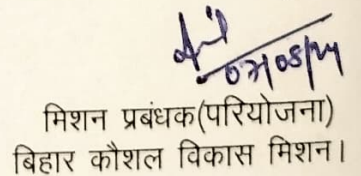 07/08/24
मिशन प्रबंधक(परियोजना)
बिहार कौशल विकास मिशन।